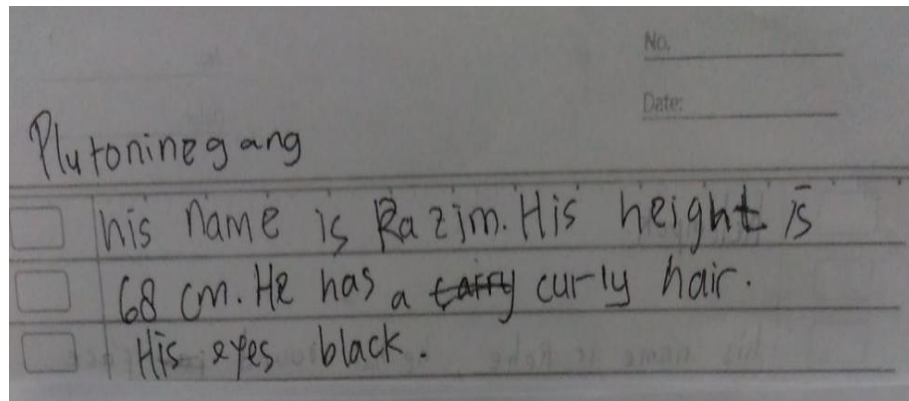 No.
Date:
Plutoninegang
his name is Razim. His height is
68 cm. He has a curly hair.
His eyes black.